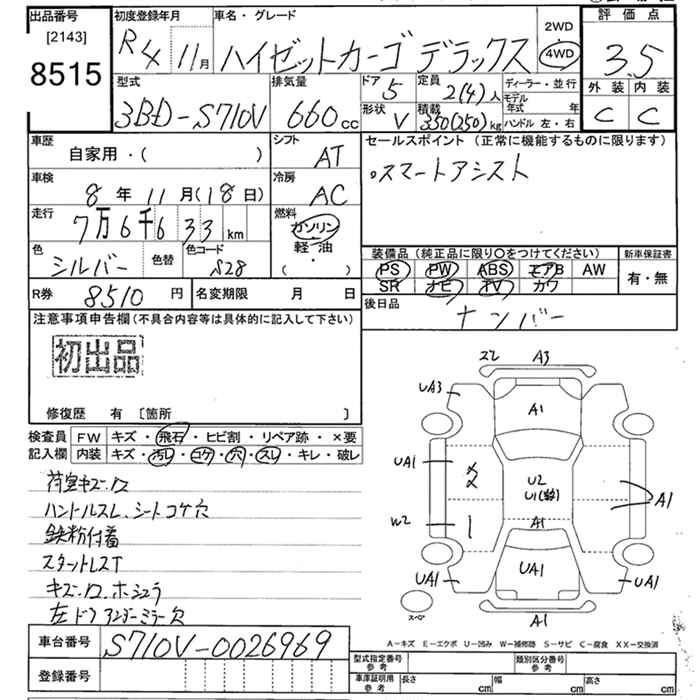 出品番号 初度登録年月 車名・グレード 2WD 評価点
[2143] R4 11月 ハイゼットカーゴ デラックス 4WD 3.5
8515
型式 排気量 ドア 5 定員 2(4)人 ディーラー・並行 外装 内装
3BD-S710V 660cc 形状 V 積載 350(250)kg モデル年式 年 C C
ハンドル 左・右
車歴 自家用・( ) シフト AT セールスポイント(正常に機能するものに限ります)
車検 8年 11月(18日) 冷房 AC 。スマートアシスト
走行 7万6千633km 燃料 ガソリン
軽油
( ・ )
色 シルバー 色替 色コード S28 装備品(純正品に限り○をつけてください) 新車保証書
PS PW ABS エアB AW 有・無
R券 8510円 名変期限 月 日 SR ナビ TV カワ
後日品 ナンバー
注意事項申告欄(不具合内容等は具体的に記入して下さい)
初出品
修復歴 有 [箇所 ]
検査員 FW キズ・飛石・ヒビ割・リペア跡・×要
記入欄 内装 キズ・汚レ・コゲ・穴・スレ・キレ・破レ
荷室キズ・ロス
ハンドルスレ、シートコゲ穴
鉄粉付着
スタットレスT
左ドアアンダーミラー欠
22 A3
UA3
A1
UA1
U2
U1
A1
A1
W2
UA1
UA1
UA1
A1
スペア
A-キズ E-エクボ U-凹み W-補修跡 S-サビ C-腐食 XX-交換済
車台番号 S710V-0026969
登録番号
型式指定番号 参考 類別区分番号 参考
車庫証明用 参考 長さ cm 幅 cm 高さ cm